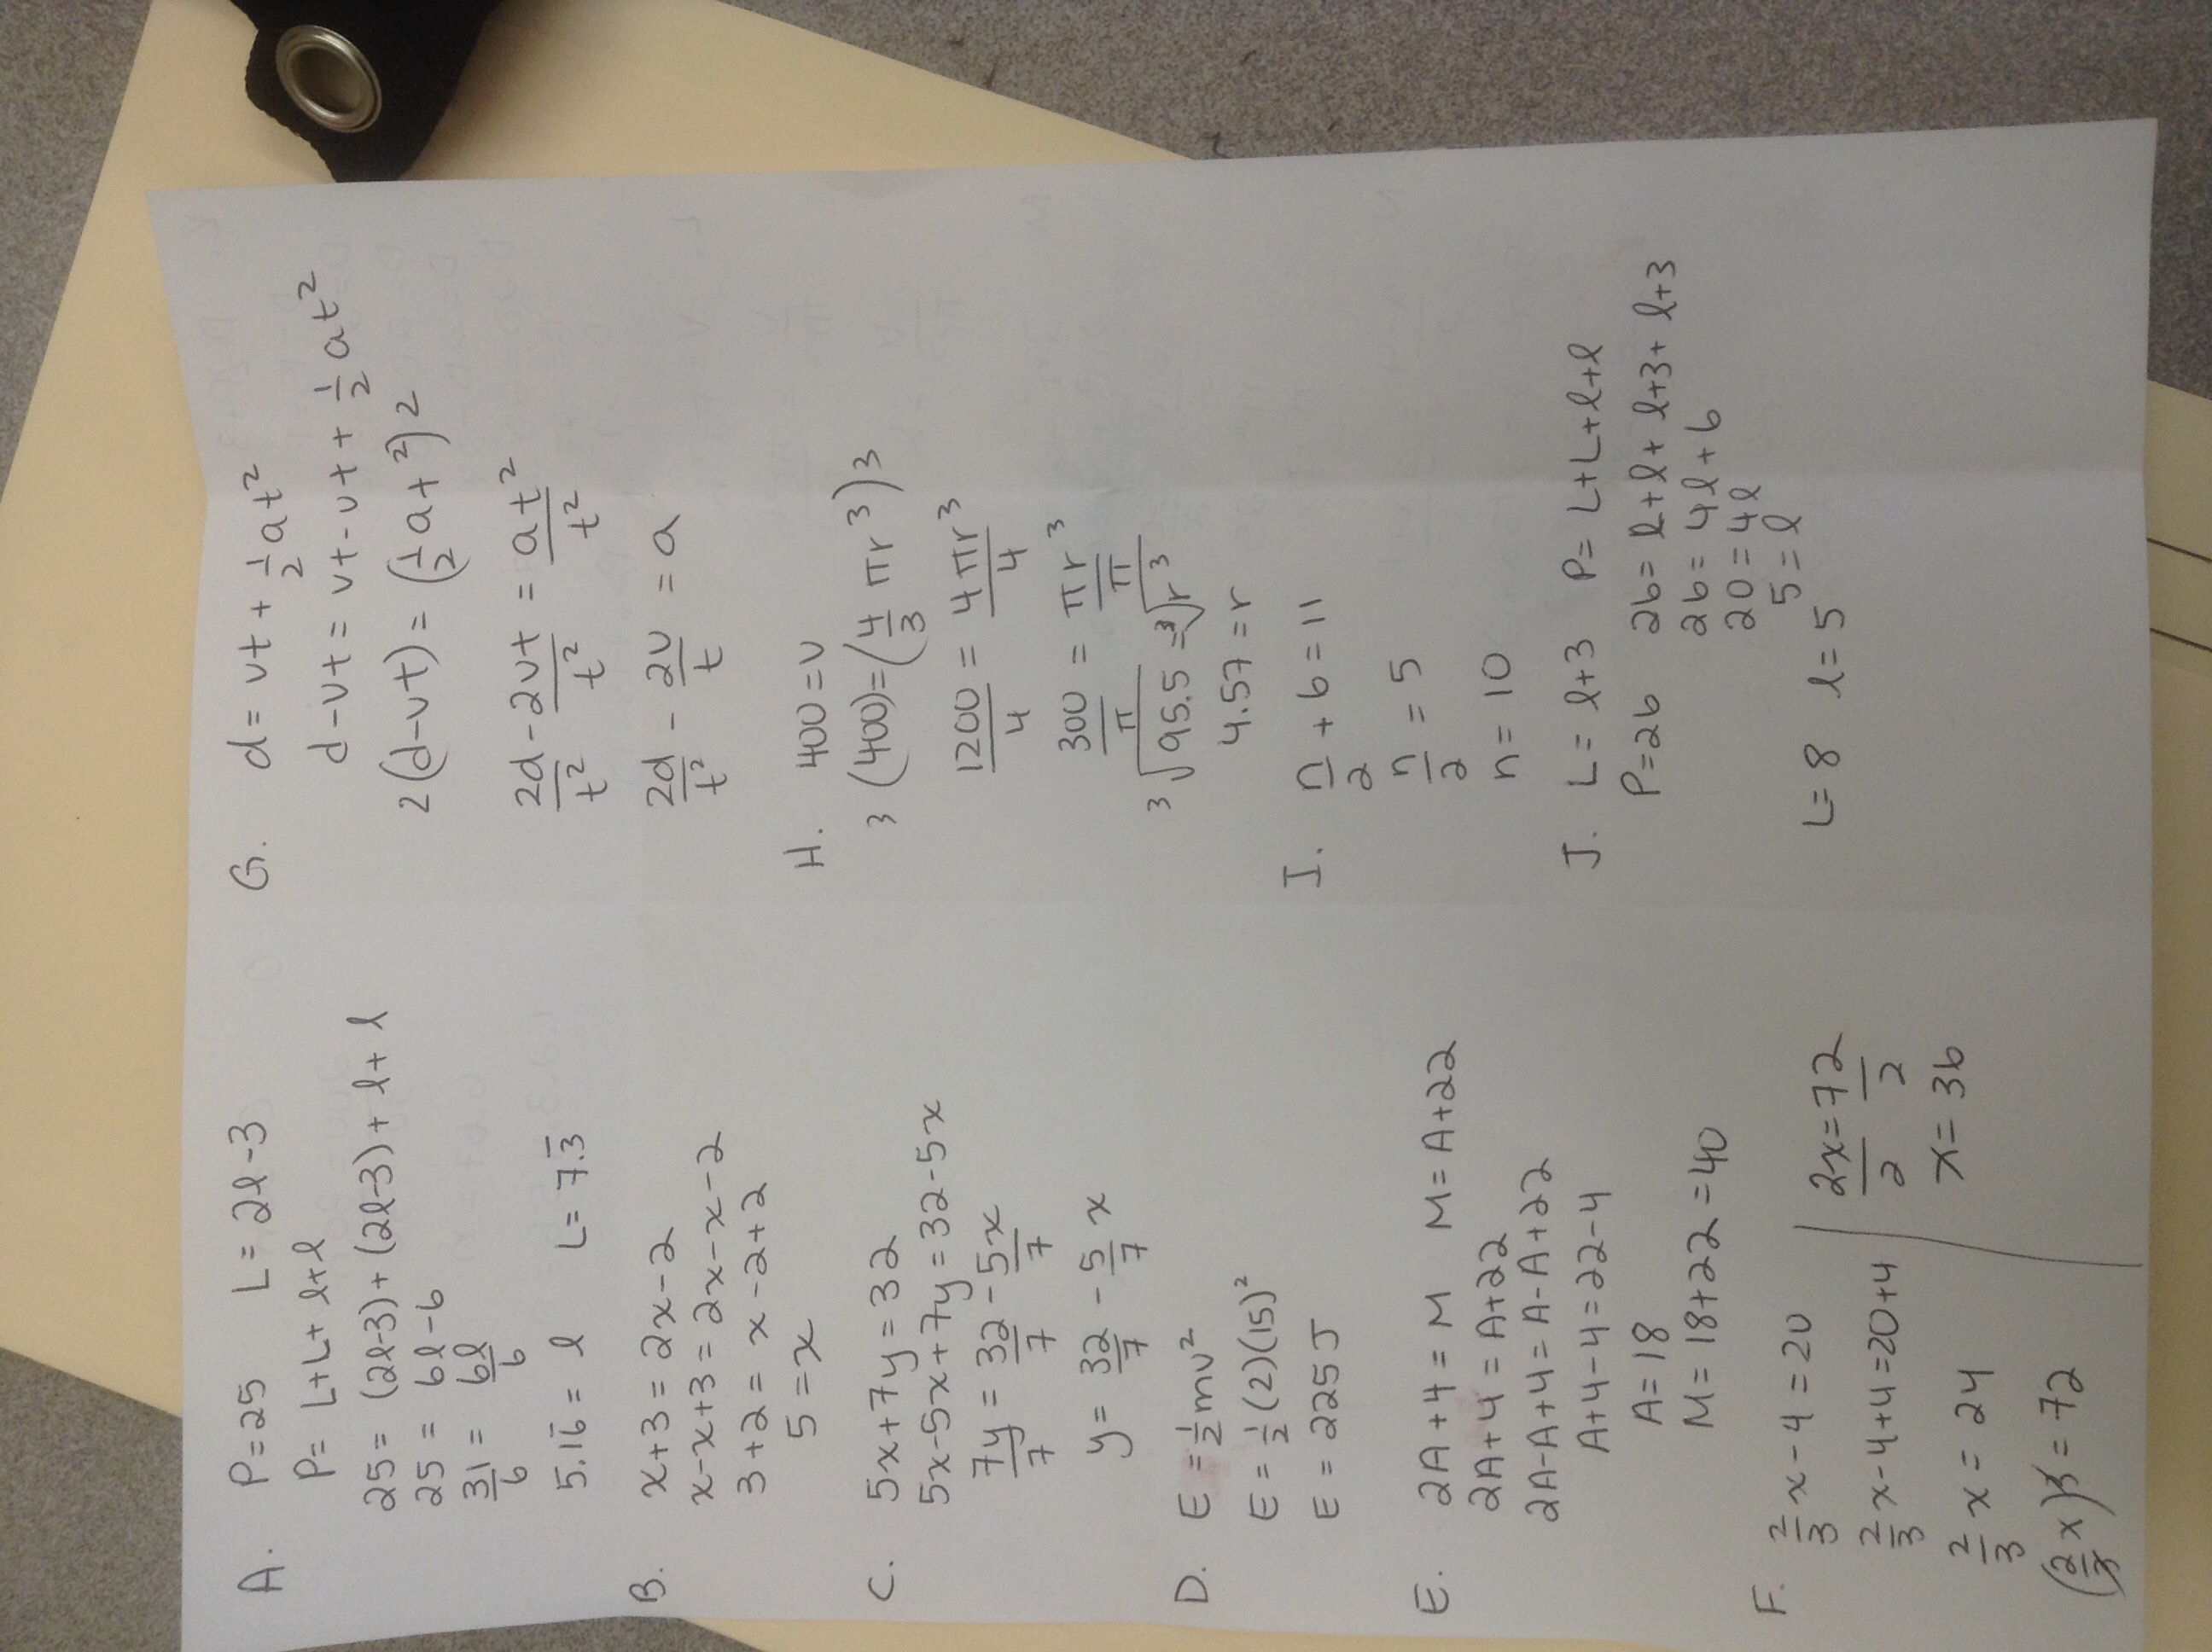 A. P=25 L= 2l-3
P= L+L+ l+l
25= (2l-3)+(2l-3)+ l+ l
25= 6l-6
31/6 = 6l/6
5.16̅ = l L= 7.3̅
B. x+3=2x-2
x-x+3=2x-x-2
3+2= x-2+2
5=x
C. 5x+7y=32
5x-5x+7y=32-5x
7y/7 = 32/7 - 5x/7
y= 32/7 - 5/7 x
D. E = 1/2 mv²
E= 1/2 (2)(15)²
E = 225 J
E. 2A+4= M M=A+22
2A+4 = A+22
2A-A+4= A-A+22
A+4-4=22-4
A=18
M= 18+22=40
F. 2/3 x-4=20
2/3 x-4+4=20+4
2/3 x = 24
(2/3 x)3=72
2x/2=72/2
x= 36
G. d= vt + 1/2 at²
d-vt= vt-vt+ 1/2 at²
2(d-vt) = (1/2 at²)2
2d/t² - 2vt/t² = at²/t²
2d/t² - 2v/t = a
H. 400=v
3(400)=(4/3 πr³)3
1200/4 = 4πr³/4
300/π = πr³/π
³√95.5 = ³√r³
4.57=r
I. n/2 + 6=11
n/2 = 5
n= 10
J. L= l+3 P= L+L+l+l
P=26 26= l+l+ l+3+ l+3
26= 4l+6
20=4l
5=l
L= 8 l=5